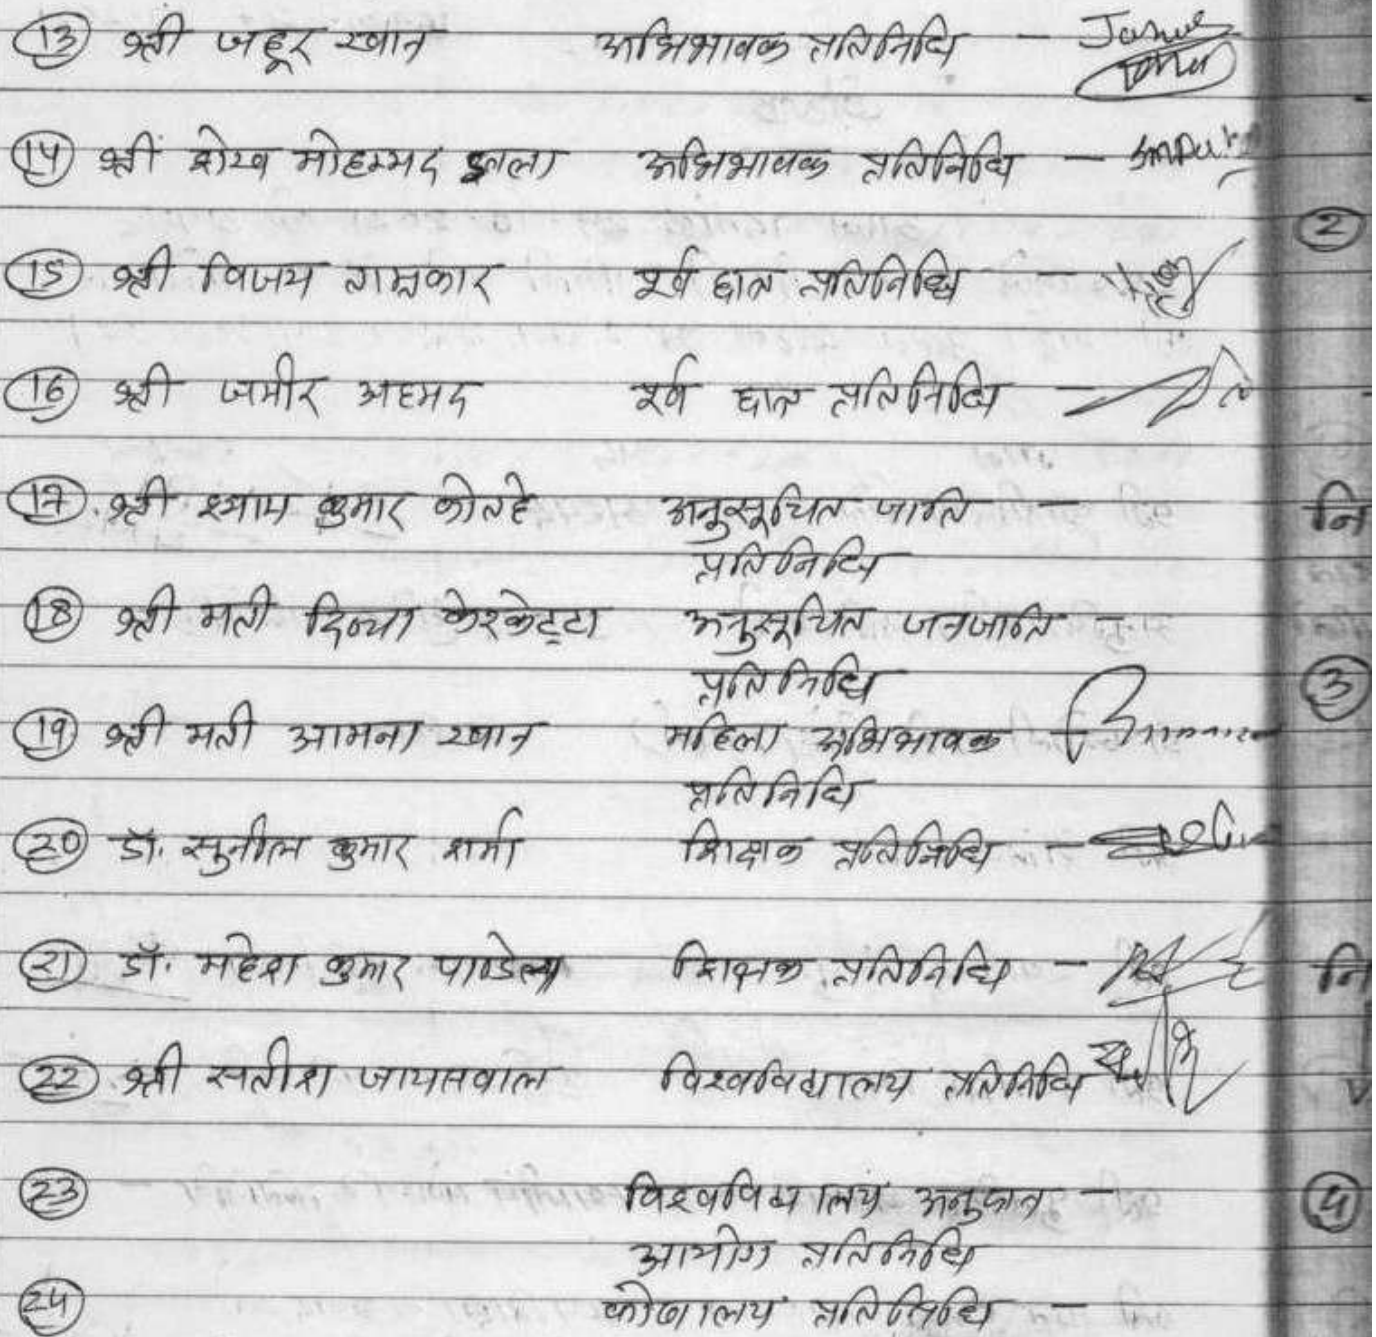 13 श्री जहूर खान अभिभावक प्रतिनिधि -
14 श्री शेख मोहम्मद अभिभावक प्रतिनिधि -
15 श्री विजय ताम्रकार पूर्व छात्र प्रतिनिधि -
16 श्री जमीर अहमद पूर्व छात्र प्रतिनिधि -
17 श्री श्याम कुमार कोल्हे अनुसूचित जाति -
प्रतिनिधि
18 श्री मती दिव्या केरकेट्टा अनुसूचित जनजाति -
प्रतिनिधि
19 श्री मती आमना खान महिला अभिभावक -
प्रतिनिधि
20 डॉ. सुनील कुमार शर्मा शिक्षक प्रतिनिधि -
21 डॉ. महेश कुमार पाण्डेय शिक्षक प्रतिनिधि -
22 श्री सतीश जायसवाल विश्वविद्यालय प्रतिनिधि
23 विश्वविद्यालय अनुदान -
आयोग प्रतिनिधि
24 कोषालय प्रतिनिधि -
2
नि
3
नि
4